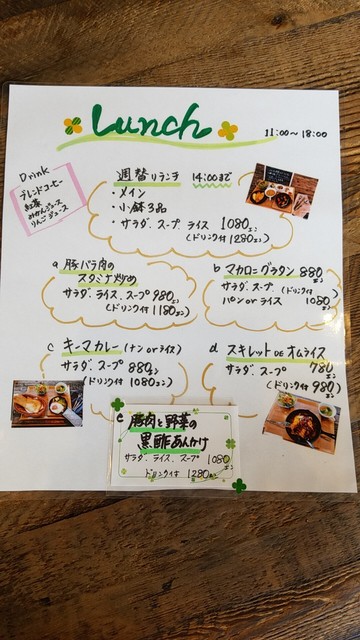 Lunch
11:00～18:00
Drink
ブレンドコーヒー
紅茶
みかんジュース
りんごジュース
週替りランチ 14:00まで
・メイン
・小鉢3品
・サラダ、スープ ライス 1080エン
(ドリンク付 1280エン)
a 豚バラ肉の
スタミナ炒め
サラダ、ライス、スープ 980エン
(ドリンク付 1180エン)
b マカロニグラタン 880エン
サラダ、スープ
パン or ライス 1080エン
c キーマカレー (ナン or ライス)
サラダ、スープ 880エン
(ドリンク付 1080エン)
d スキレット de オムライス
サラダ、スープ 780エン
(ドリンク付 980エン)
e 豚肉と野菜の
黒酢あんかけ
サラダ、ライス、スープ 1080エン
ドリンク付 1280エン